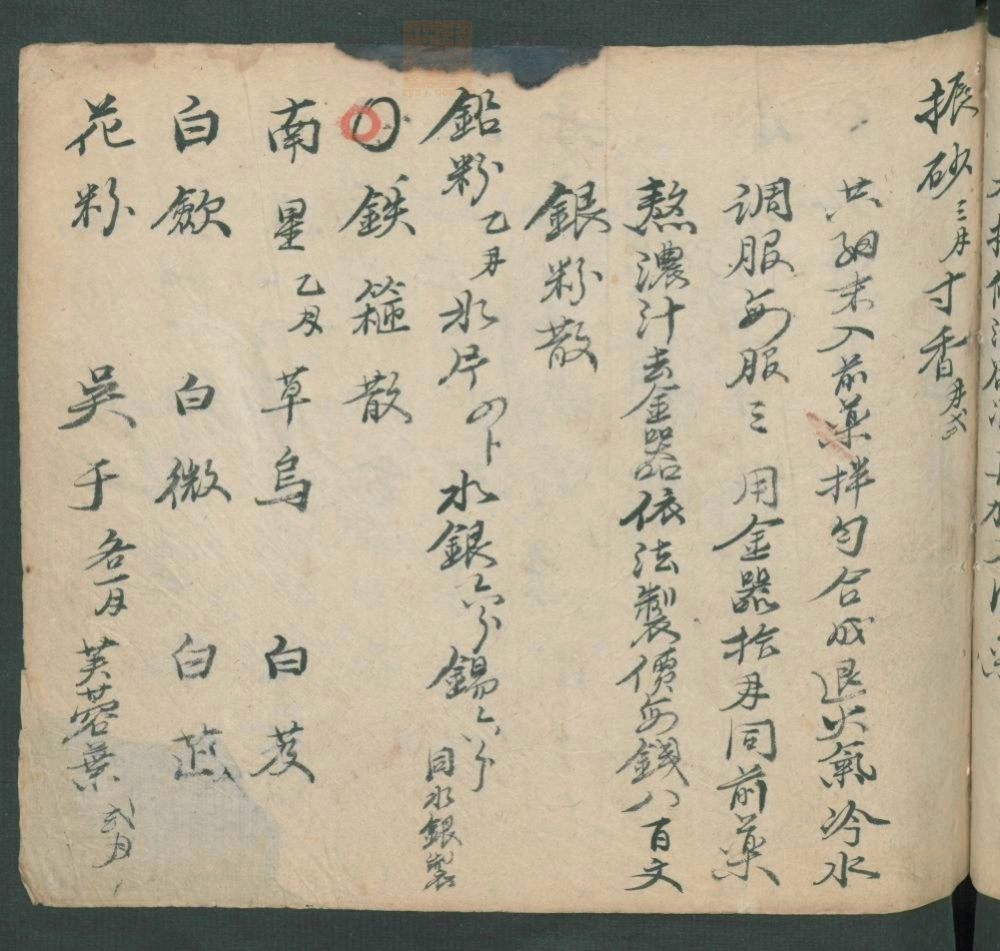 振砂三月寸香月弍
共細末入前藥拌匀合成退火氣冷水
调服每服三 用金器拾月同前藥
熬濃汁去金器依法製價每錢八百文
銀粉散
鉛粉乙月水片四卜水銀六分錫六分同水銀製
鉄箍散
南星乙月 草烏 白芨
白歛 白微 白芷
花粉 吳于各一月芙蓉葉弍月